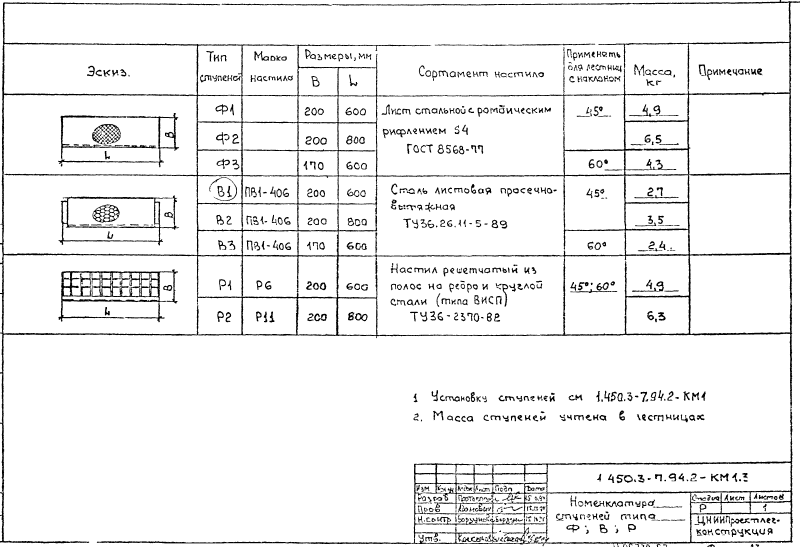 Эскиз.
Тип ступеней
Марка настила
Размеры, мм
B
L
Сортамент настила
Применять для лестниц с наклоном
Масса, кг
Примечание
B
L
Ф1 200 600 Лист стальной с ромбическим 45° 4,9
рифлением S4
Ф2 200 800 6,5
ГОСТ 8568-77
Ф3 170 600 60° 4.3
B
L
В1 ПВ1-406 200 600 Сталь листовая просечно- 45° 2,7
вытяжная
В2 ПВ1-406 200 800 ТУ36.26.11-5-89 3,5
В3 ПВ1-406 170 600 60° 2,4
B
L
Настил решетчатый из
Р1 Р6 200 600 полос на ребро и круглой 45°; 60° 4,9
стали (типа ВИСП)
Р2 Р11 200 800 ТУ36-2370-82 6,3
1 Установку ступеней см 1.450.3-7.94.2-КМ1
2. Масса ступеней учтена в лестницах
1 450.3-7.94.2-КМ1.3
Изм Подп Дата
Разраб
Пров
Н.контр
Утв.
Номенклатура
ступеней типа
Ф; В; Р
Стадия Лист Листов
Р 1
ЦНИИПроектлег-
конструкция